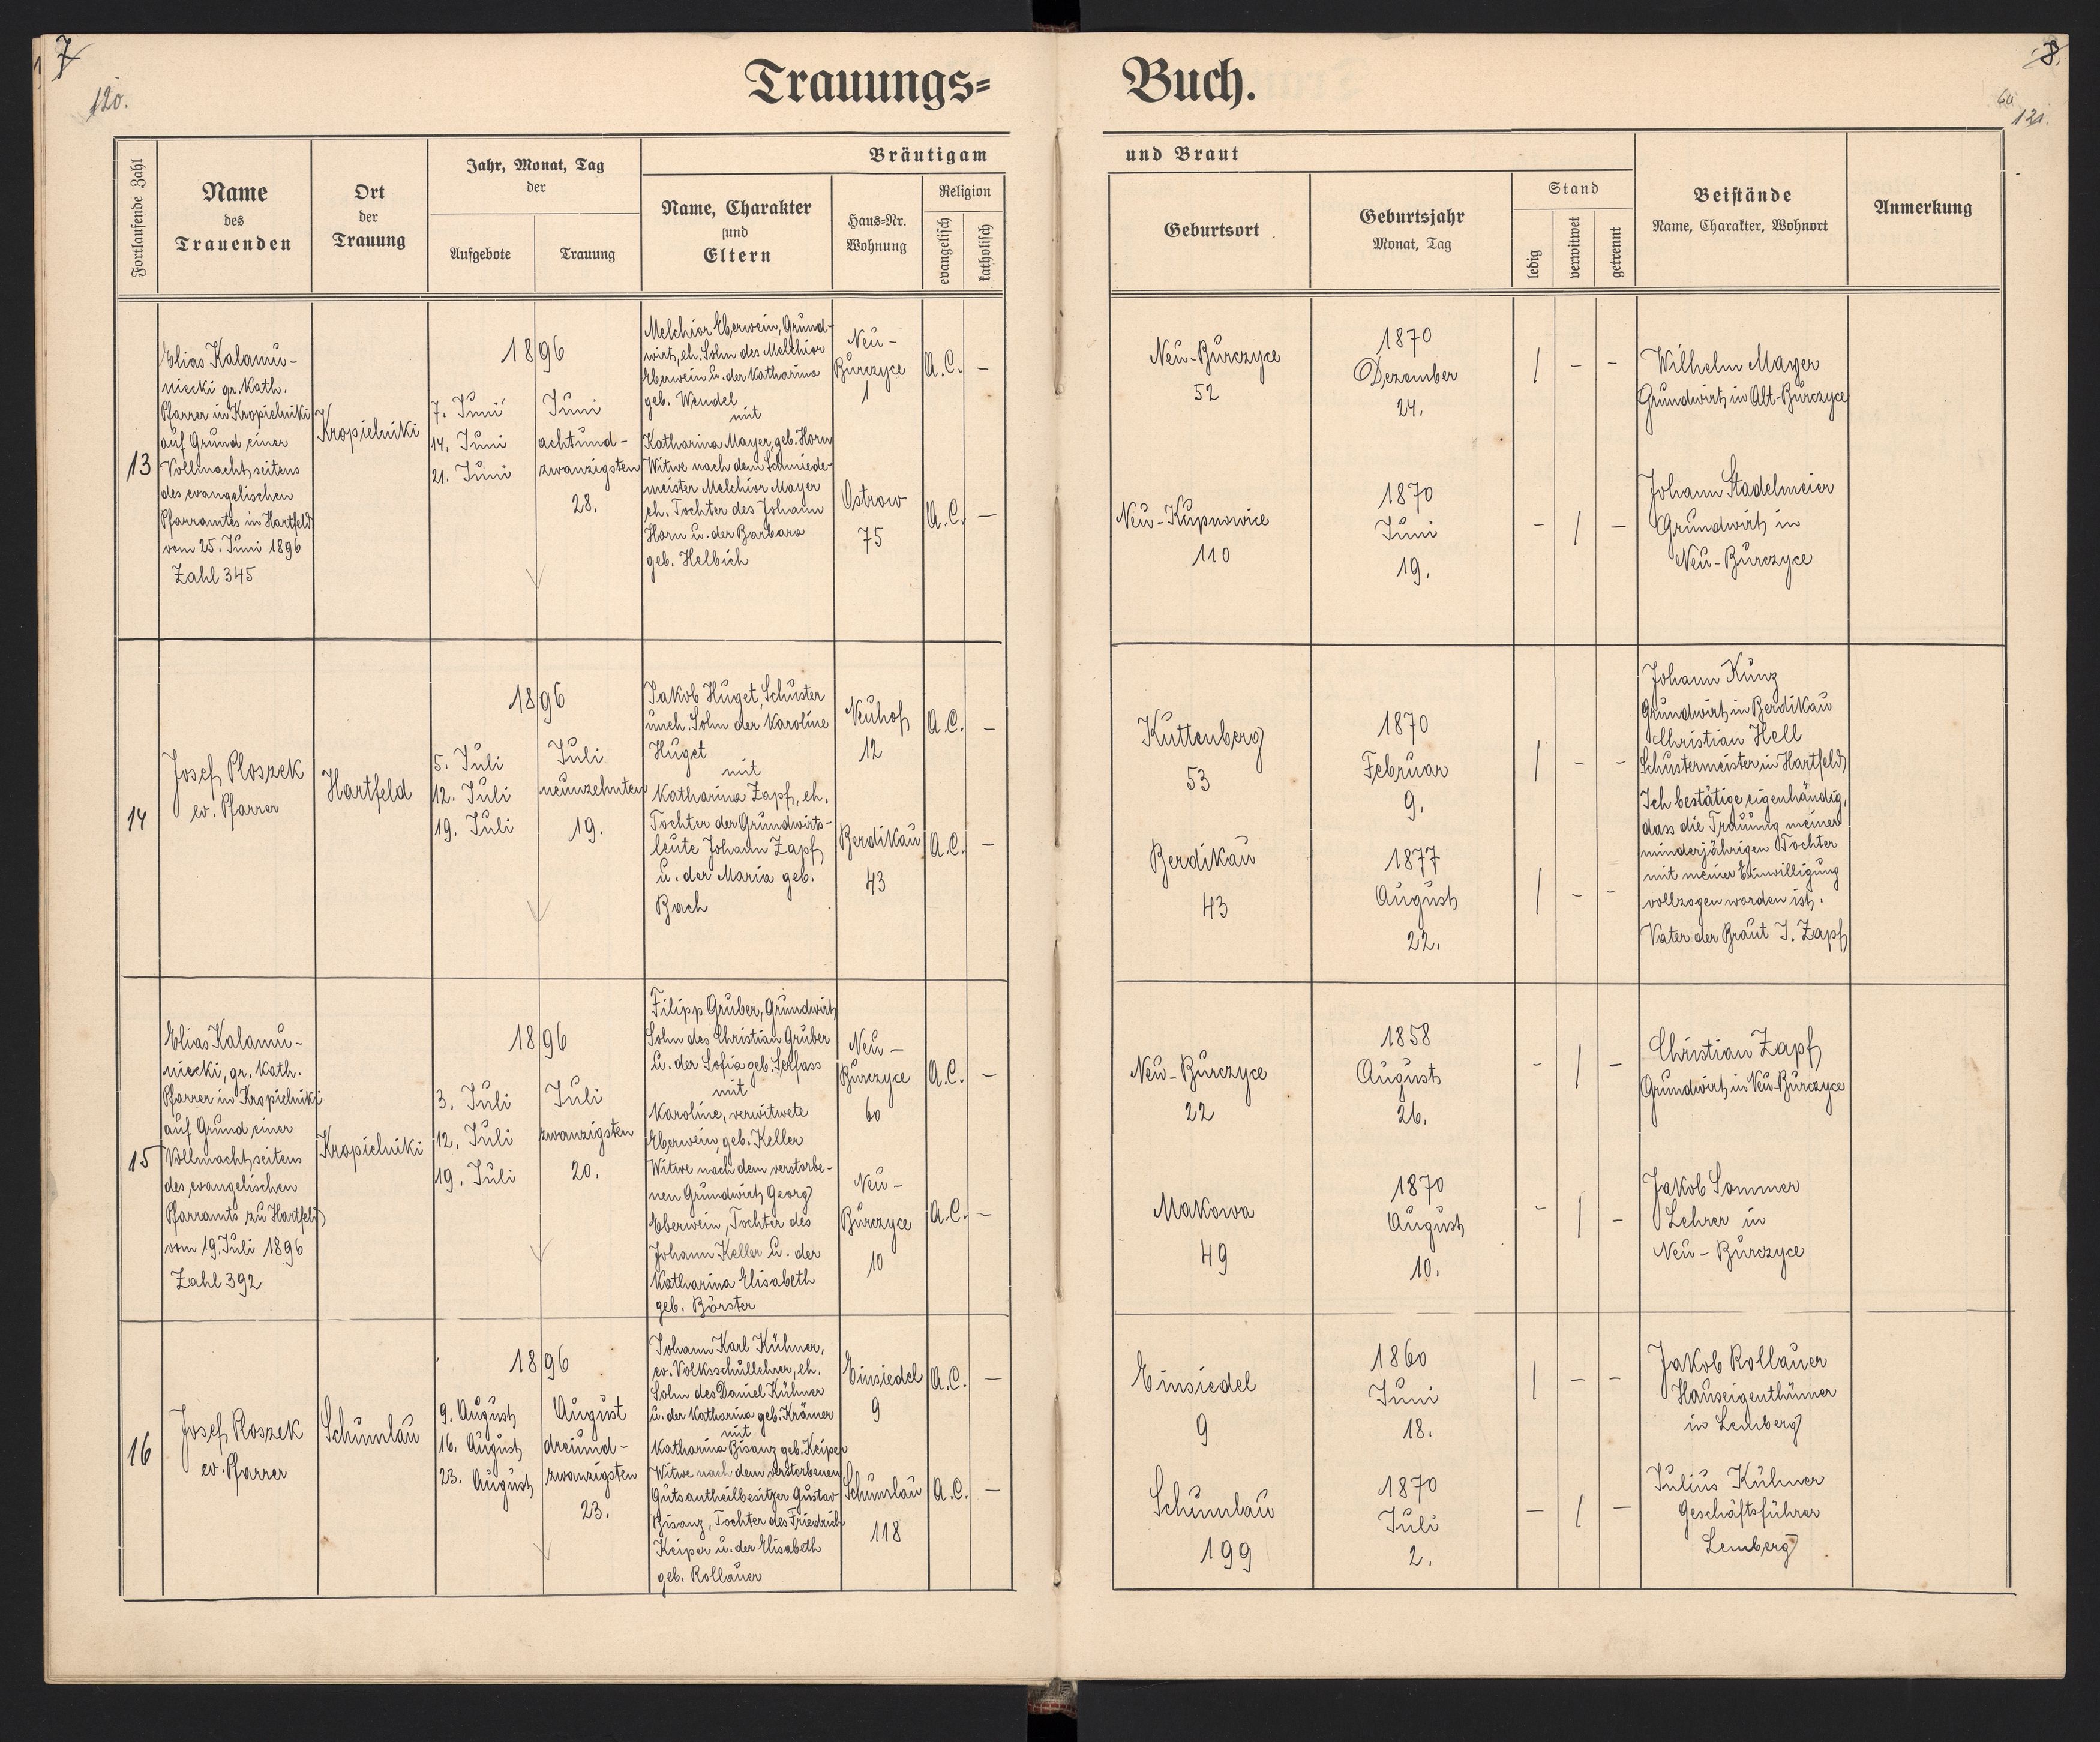 7
120.
Trauungs=
Buch.
8.
60
121.
Fortlaufende Zahl
Name
des
Trauenden
Ort
der
Trauung
Jahr, Monat, Tag
der
Aufgebote
Trauung
Bräutigam
Name, Charakter
und
Eltern
Haus=Nr.
Wohnung
Religion
evangelisch
katholisch
und Braut
Geburtsort
Geburtsjahr
Monat, Tag
Stand
ledig
verwitwet
getrennt
Beistände
Name, Charakter, Wohnort
Anmerkung
13
Elias Kalamu-
niecki gr. Kath.
Pfarrer in Kropielniki
auf Grund einer
Vollmacht seitens
des evangelischen
Pfarramtes in Hartfeld
vom 25. Juni 1896
Zahl 345
Kropielniki
1896
7. Juni
14. Juni
21. Juni
Juni
achtund-
zwanzigsten
28.
Melchior Eberwein, Grund-
wirt, eh. Sohn des Melchior
Eberwein u. der Katharina
geb. Wendel
mit
Katharina Mayer, geb. Horn
Witwe nach dem Schmiede-
meister Melchior Mayer
eh. Tochter des Johann
Horn u. der Barbara
geb. Helbich
Neu-
Burczyce
1
Ostrow
75
A.C. –
A.C. –
Neu-Burczyce
52
Neu-Kupnowice
110
1870
Dezember
24.
1870
Juni
19.
| - -
- | -
Wilhelm Mayer
Grundwirt in Alt-Burczyce
Johann Stadelmeier
Grundwirt in
Neu-Burczyce
14
Josef Ploszek
ev. Pfarrer
Hartfeld
1896
5. Juli
12. Juli
19. Juli
Juli
neunzehnten
19.
Jakob Huget, Schuster
uneh. Sohn der Karoline
Huget
mit
Katharina Zapf, eh.
Tochter der Grundwirts-
leute Johann Zapf
u. der Maria geb.
Bach
Neuhof
12
Berdikau
43
A.C. –
A.C. –
Kuttenberg
53
Berdikau
43
1870
Februar
9.
1877
August
22.
| - -
| - -
Johann Kunz
Grundwirt in Berdikau
Christian Hell
Schustermeister in Hartfeld
Ich bestätige eigenhändig,
dass die Trauung meiner
minderjährigen Tochter
mit meiner Einwilligung
vollzogen worden ist.
Vater der Braut J. Zapf
15
Elias Kalamu-
niecki, gr. Kath.
Pfarrer in Kropielniki
auf Grund einer
Vollmacht seitens
des evangelischen
Pfarramts zu Hartfeld
vom 19. Juli 1896
Zahl 392
Kropielniki
1896
3. Juli
12. Juli
19. Juli
Juli
zwanzigsten
20.
Filipp Gruber, Grundwirt
Sohn des Christian Gruber
u. der Sofia geb. Serfass
mit
Karoline, verwitwete
Eberwein, geb. Keller
Witwe nach dem verstorbe-
nen Grundwirt Georg
Eberwein, Tochter des
Johann Keller u. der
Katharina Elisabeth
geb. Börster
Neu-
Burczyce
60
Neu-
Burczyce
10
A.C. –
A.C. –
Neu-Burczyce
22
Makowa
49
1858
August
26.
1870
August
10.
- | -
- | -
Christian Zapf
Grundwirt in Neu-Burczyce
Jakob Sommer
Lehrer in
Neu-Burczyce
16
Josef Ploszek
ev. Pfarrer
Schumlau
1896
9. August
16. August
23. August
August
dreiund-
zwanzigsten
23.
Johann Karl Kühner,
ev. Volksschullehrer, eh.
Sohn des Daniel Kühner
u. der Katharina geb. Krämer
mit
Katharina Bisanz geb. Keiper
Witwe nach dem verstorbenen
Gutsantheilbesitzer Gustav
Bisanz, Tochter des Friedrich
Keiper u. der Elisabeth
geb. Rollauer
Einsiedel
9
Schumlau
118
A.C. –
A.C. –
Einsiedel
9
Schumlau
199
1860
Juni
18.
1870
Juli
2.
| - -
- | -
Jakob Rollauer
Hauseigenthümer
in Lemberg
Julius Kühner
Geschäftsführer
Lemberg